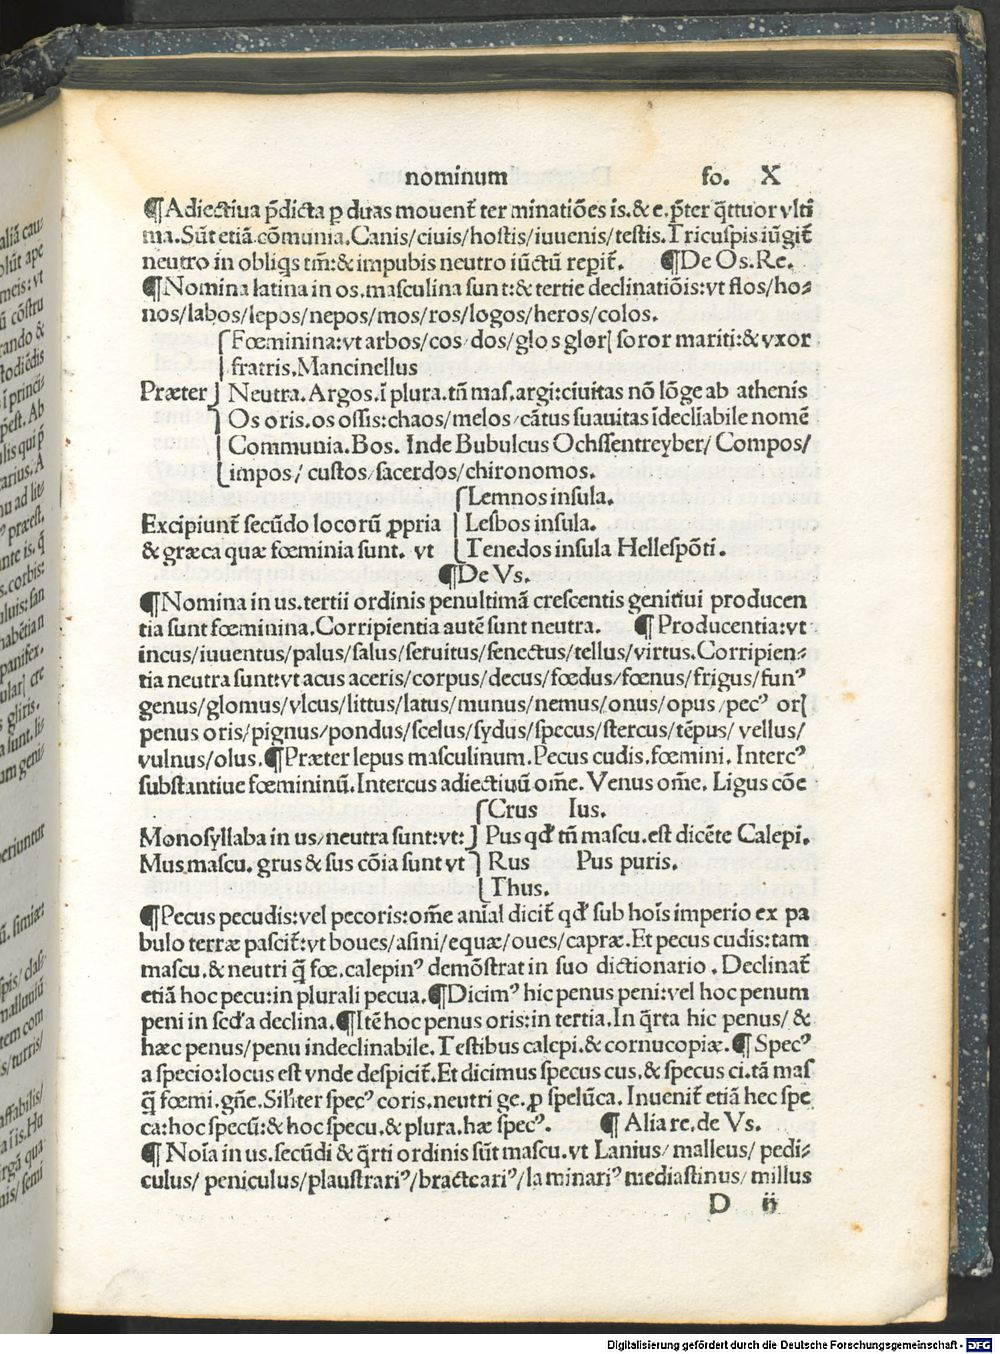 nominum fo. X
¶Adiectiua p̄dicta p duas mouent̄ ter minatiões is.&e.p̄ter q̄ttuor vlti
ma.Sūt etiā cōmunia.Canis/ciuis/hostis/iuuenis/testis.Tricuspis iūgit̄
neutro in obliq̄s tm̄:&impubis neutro iūctū repit̄. ¶De Os.Re.
¶Nomina latina in os.masculina sunt:&tertie declinatiōis:vt flos/ho⸗
nos/labos/lepos/nepos/mos/ros/logos/heros/colos.
Fœminina:vt arbos/cos/dos/glos glorꝭ soror mariti:&vxor
fratris,Mancinellus
Præter Neutra.Argos.ī plura.tñ mas.argi:ciuitas nō lōge ab athenis
Os oris.os ossis:chaos/melos/cātus suauitas īdecliabile nomē
Communia.Bos. Inde Bubulcus Ochssentreyber/ Compos/
impos/ custos/sacerdos/chironomos.
Lemnos insula.
Excipiunt̄ secūdo locorū ꝓpria Lesbos insula.
&græca quæ fœminia sunt. vt Tenedos insula Hellespōti.
¶De Vs.
¶Nomina in us.tertii ordinis penultimā crescentis genitiui producen
tia sunt fœminina.Corripientia autē sunt neutra. ¶Producentia:vt
incus/iuuentus/palus/salus/seruitus/senectus/tellus/virtus.Corripien⸗
tia neutra sunt:vt acus aceris/corpus/decus/fœdus/fœnus/frigus/funꝰ
genus/glomus/vlcus/littus/latus/munus/nemus/onus/opus/pecꝰ orꝭ
penus oris/pignus/pondus/scelus/sydus/specus/stercus/tēpus/ vellus/
vulnus/olus.¶Præter lepus masculinum.Pecus cudis.fœmini. Intercꝰ
substantiue fœmininū.Intercus adiectiuū om̄e. Venus om̄e. Ligus cōe
Crus Ius.
Monosyllaba in us/neutra sunt:vt: Pus qd̄ tñ mascu.est dicēte Calepi.
Mus mascu. grus & sus cōia sunt vt Rus Pus puris.
Thus.
¶Pecus pecudis:vel pecoris:om̄e anīal dicit̄ qd̄ sub hoīs imperio ex pa
bulo terræ pascit̄:vt boues/asini/equæ/oues/capræ.Et pecus cudis:tam
mascu.&neutri q̄ fœ.calepinꝰ demōstrat in suo dictionario. Declinat̄
etiā hoc pecu:in plurali pecua.¶Dicimꝰ hic penus peni:vel hoc penum
peni in scd̄a declina.¶Itē hoc penus oris:in tertia.In q̄rta hic penus/ &
hæc penus/penu indeclinabile.Testibus calepi.&cornucopiæ.¶Specꝰ
a specio:locus est vnde despicit̄.Et dicimus specus cus.&specus ci.tā mas
q̄ fœmi.gn̄e.Sil̄iter specꝰ coris.neutri ge.ꝓ spelūca. Inuenit̄ etiā hec spe
ca:hoc specū:&hoc specu.&plura.hæ specꝰ. ¶Alia re.de Vs.
¶Noīa in us.secūdi & q̄rti ordinis sūt mascu.vt Lanius/malleus/ pedi⸗
culus/ peniculus/plaustrariꝰ/bracteariꝰ/laminariꝰ mediastinus/millus
D ij
Digitalisierung gefördert durch die Deutsche Forschungsgemeinschaft - DFG